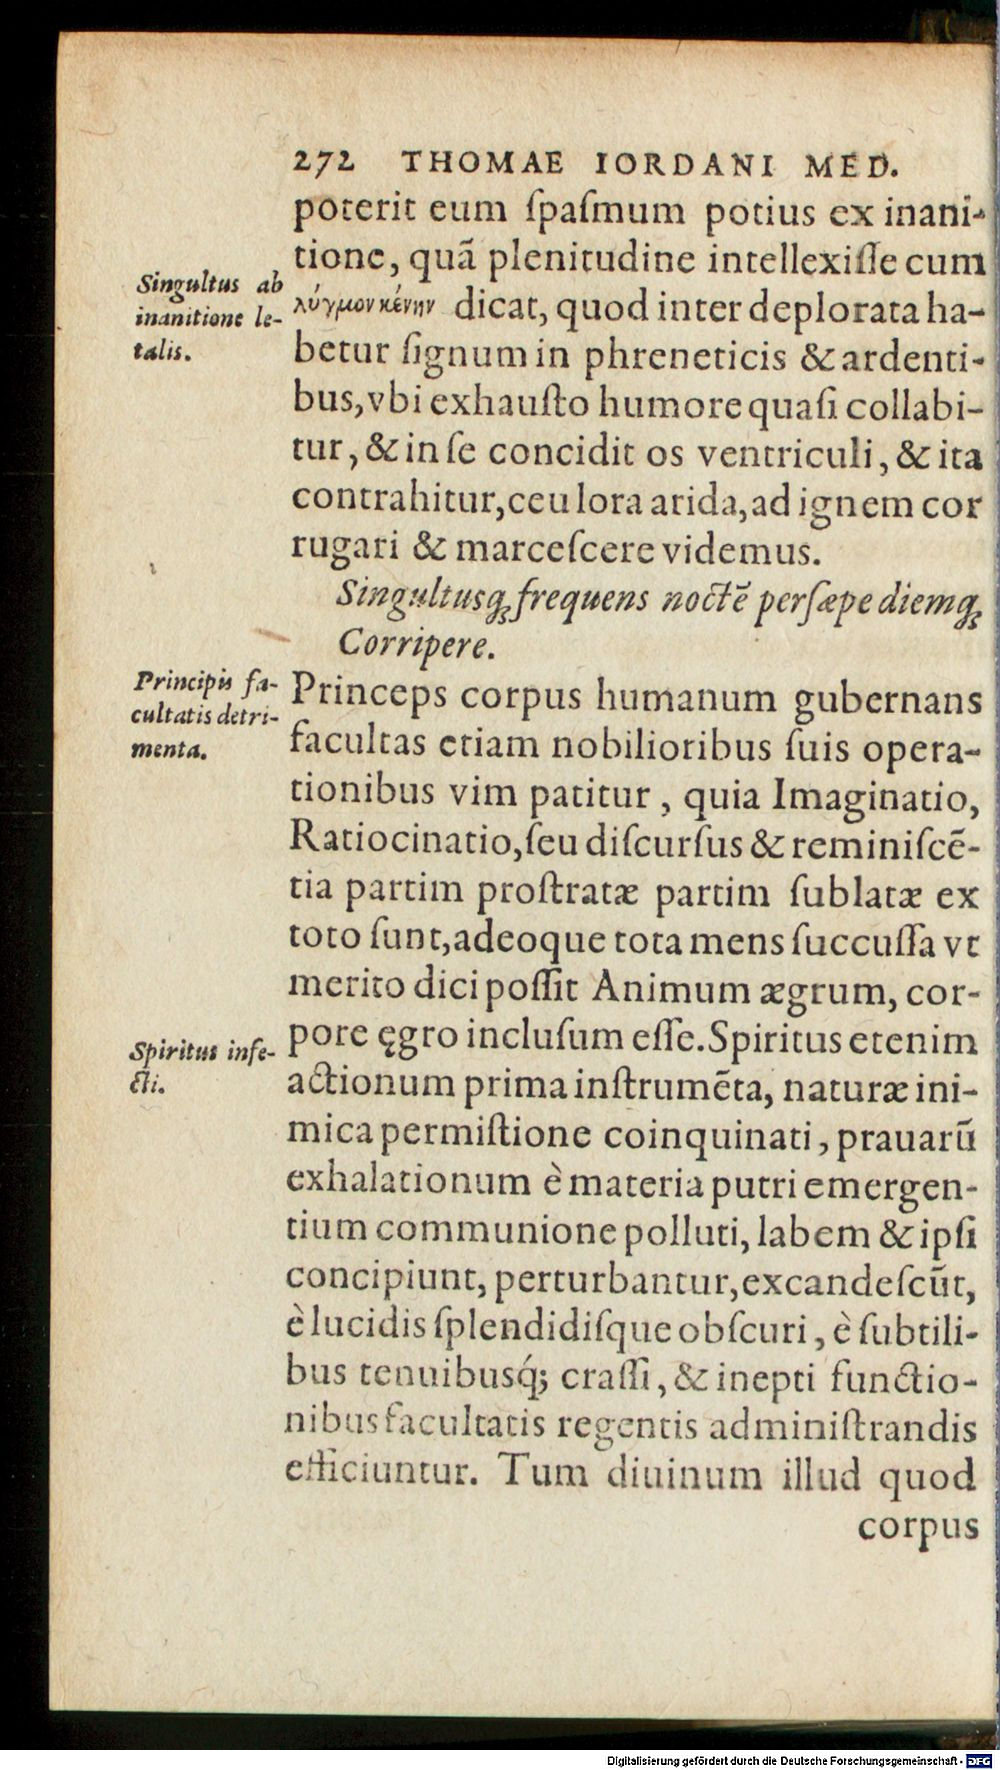 272 THOMAE IORDANI MED.
poterit eum ſpaſmum potius ex inani-
tione, quā plenitudine intellexiſſe cum
λύγμον κένην dicat, quod inter deplorata ha-
betur ſignum in phreneticis & ardenti-
bus, vbi exhauſto humore quaſi collabi-
tur, & in ſe concidit os ventriculi, & ita
contrahitur, ceu lora arida, ad ignem cor
rugari & marceſcere videmus.
Singultusq; frequens noctē perſæpe diemq;
Corripere.
Princeps corpus humanum gubernans
facultas etiam nobilioribus ſuis opera-
tionibus vim patitur, quia Imaginatio,
Ratiocinatio, ſeu diſcurſus & reminiſcē-
tia partim proſtratæ partim ſublatæ ex
toto ſunt, adeoque tota mens ſuccuſſa vt
merito dici poſſit Animum ægrum, cor-
pore ęgro incluſum eſſe. Spiritus etenim
actionum prima inſtrumēta, naturæ ini-
mica permiſtione coinquinati, prauarū
exhalationum è materia putri emergen-
tium communione polluti, labem & ipſi
concipiunt, perturbantur, excandeſcūt,
è lucidis ſplendidiſque obſcuri, è ſubtili-
bus tenuibusq́; craſſi, & inepti functio-
nibus facultatis regentis adminiſtrandis
efficiuntur. Tum diuinum illud quod
corpus
Singultus ab
inanitione le-
talis.
Principis fa-
cultatis detri-
menta.
Spiritus infe-
cti.
Digitalisierung gefördert durch die Deutsche Forschungsgemeinschaft - DFG